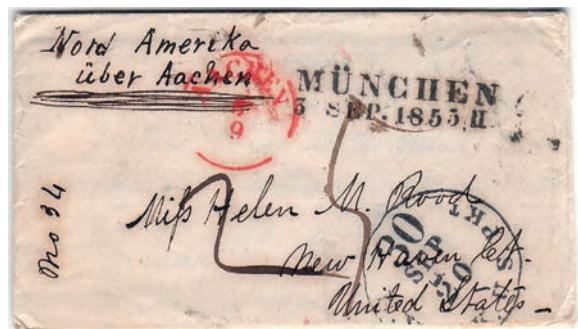 Nord Amerika
über Aachen
AACHEN
9
MÜNCHEN
5 SEP. 1855. II
No 34
Miss Helen M. Rood
New Haven Ct.
United States
30
SEP
20
PKT
25